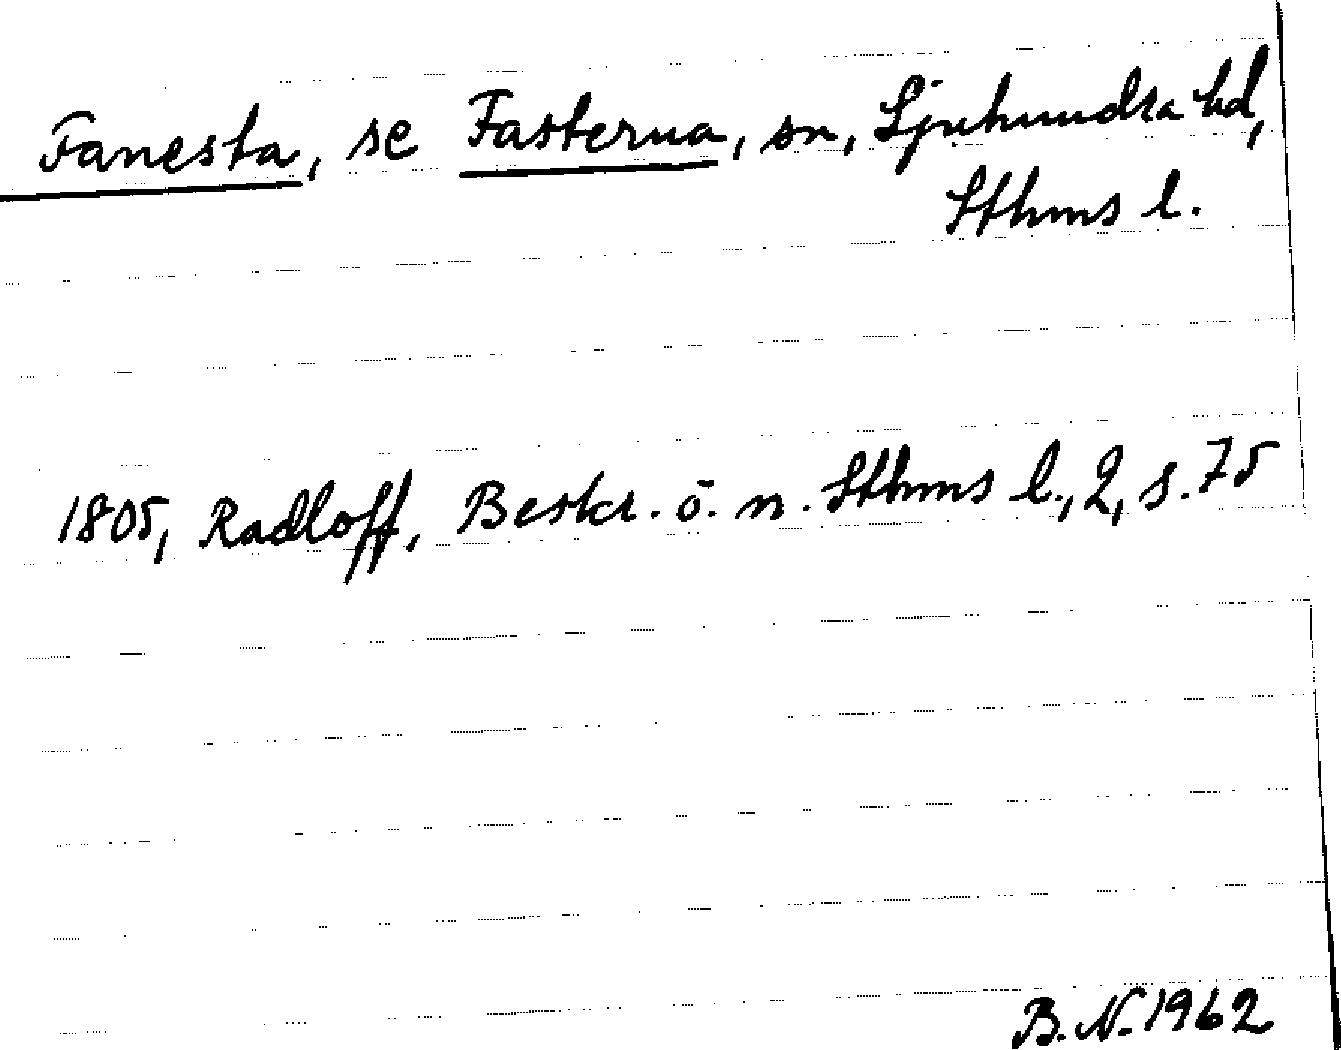 Fanesta, se Fasterna, sn, Sjuhundra hd,
Sthms l.
1805, Radloff, Beskr. ö. n. Sthms l., 2, s. 75
B. N. 1962